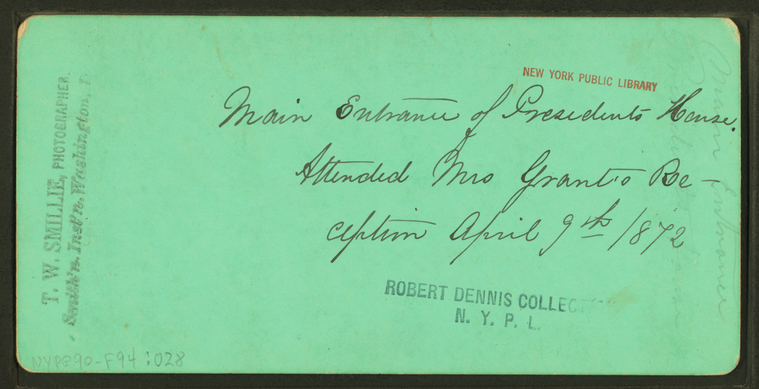 NEW YORK PUBLIC LIBRARY
Main Entrance of Presedents House.
Attended Mrs Grant's Re-
ception April 9th 1872
ROBERT DENNIS COLLEC
N. Y. P. L.
T. W. SMILLIE, PHOTOGRAPHER,
Smith'n. Inst'n. Washington,
NYPG90-F94:028
Main Entrance